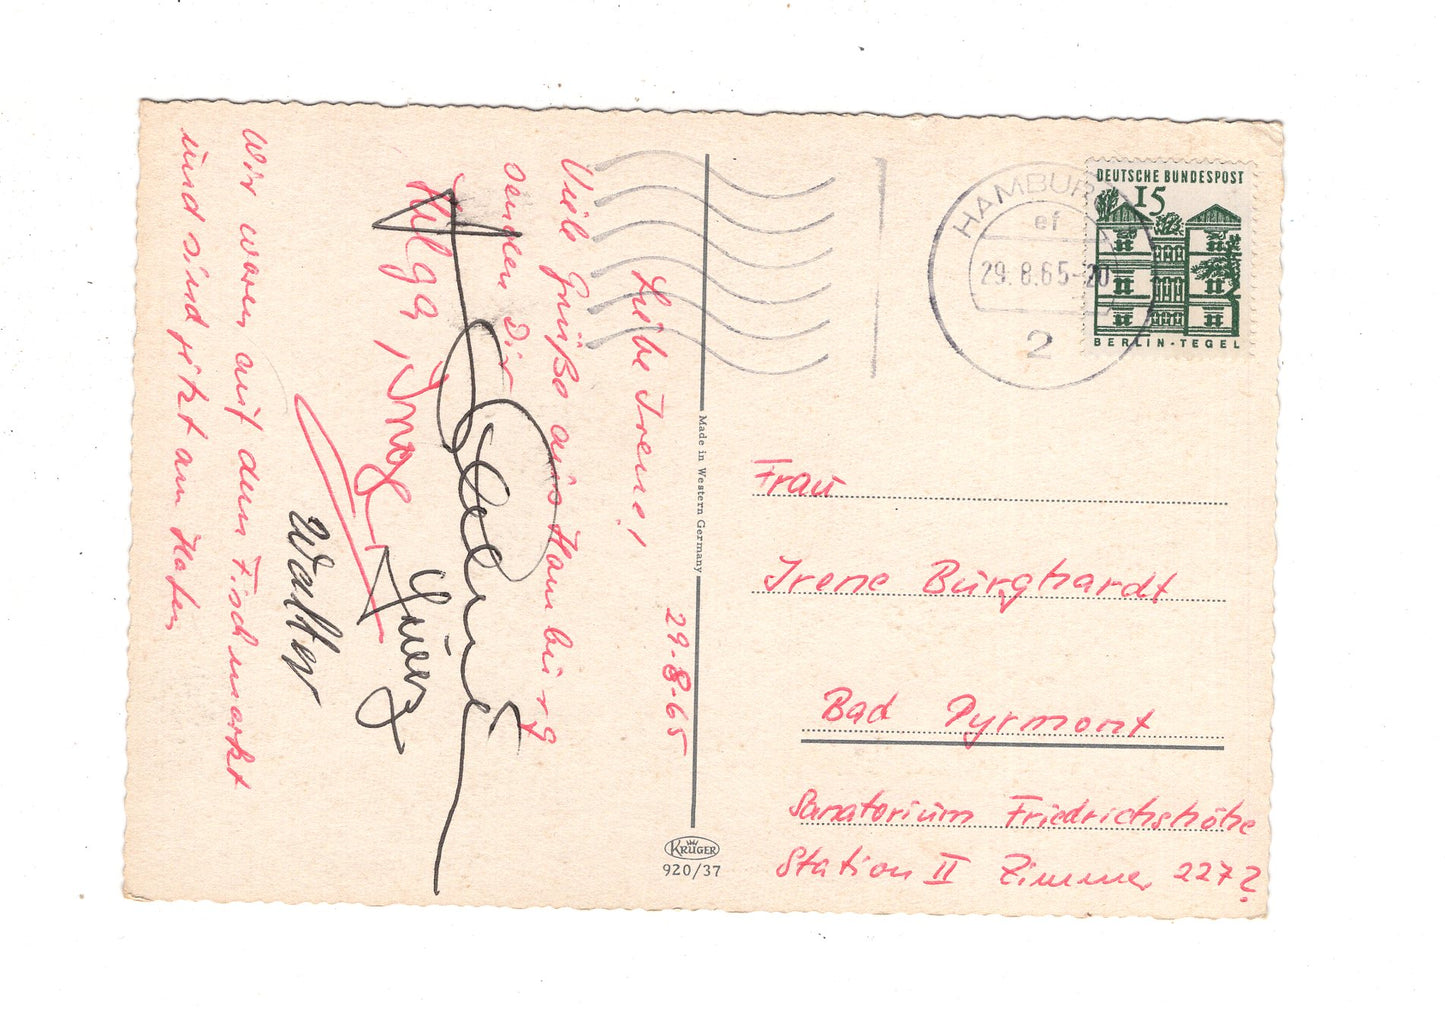 29.8.65
Liebe Irene!
Viele Grüße aus Hamburg
senden Dir
Helga, Inge
Walter
Wir waren auf dem Fischmarkt
und sind jetzt am Hafen
Made in Western Germany
KRÜGER
920/37
HAMBURG
ef
29.8.65-20
2
DEUTSCHE BUNDESPOST
15
BERLIN-TEGEL
Frau
Irene Burghardt
Bad Pyrmont
Sanatorium Friedrichshöhe
Station II Zimmer 227?